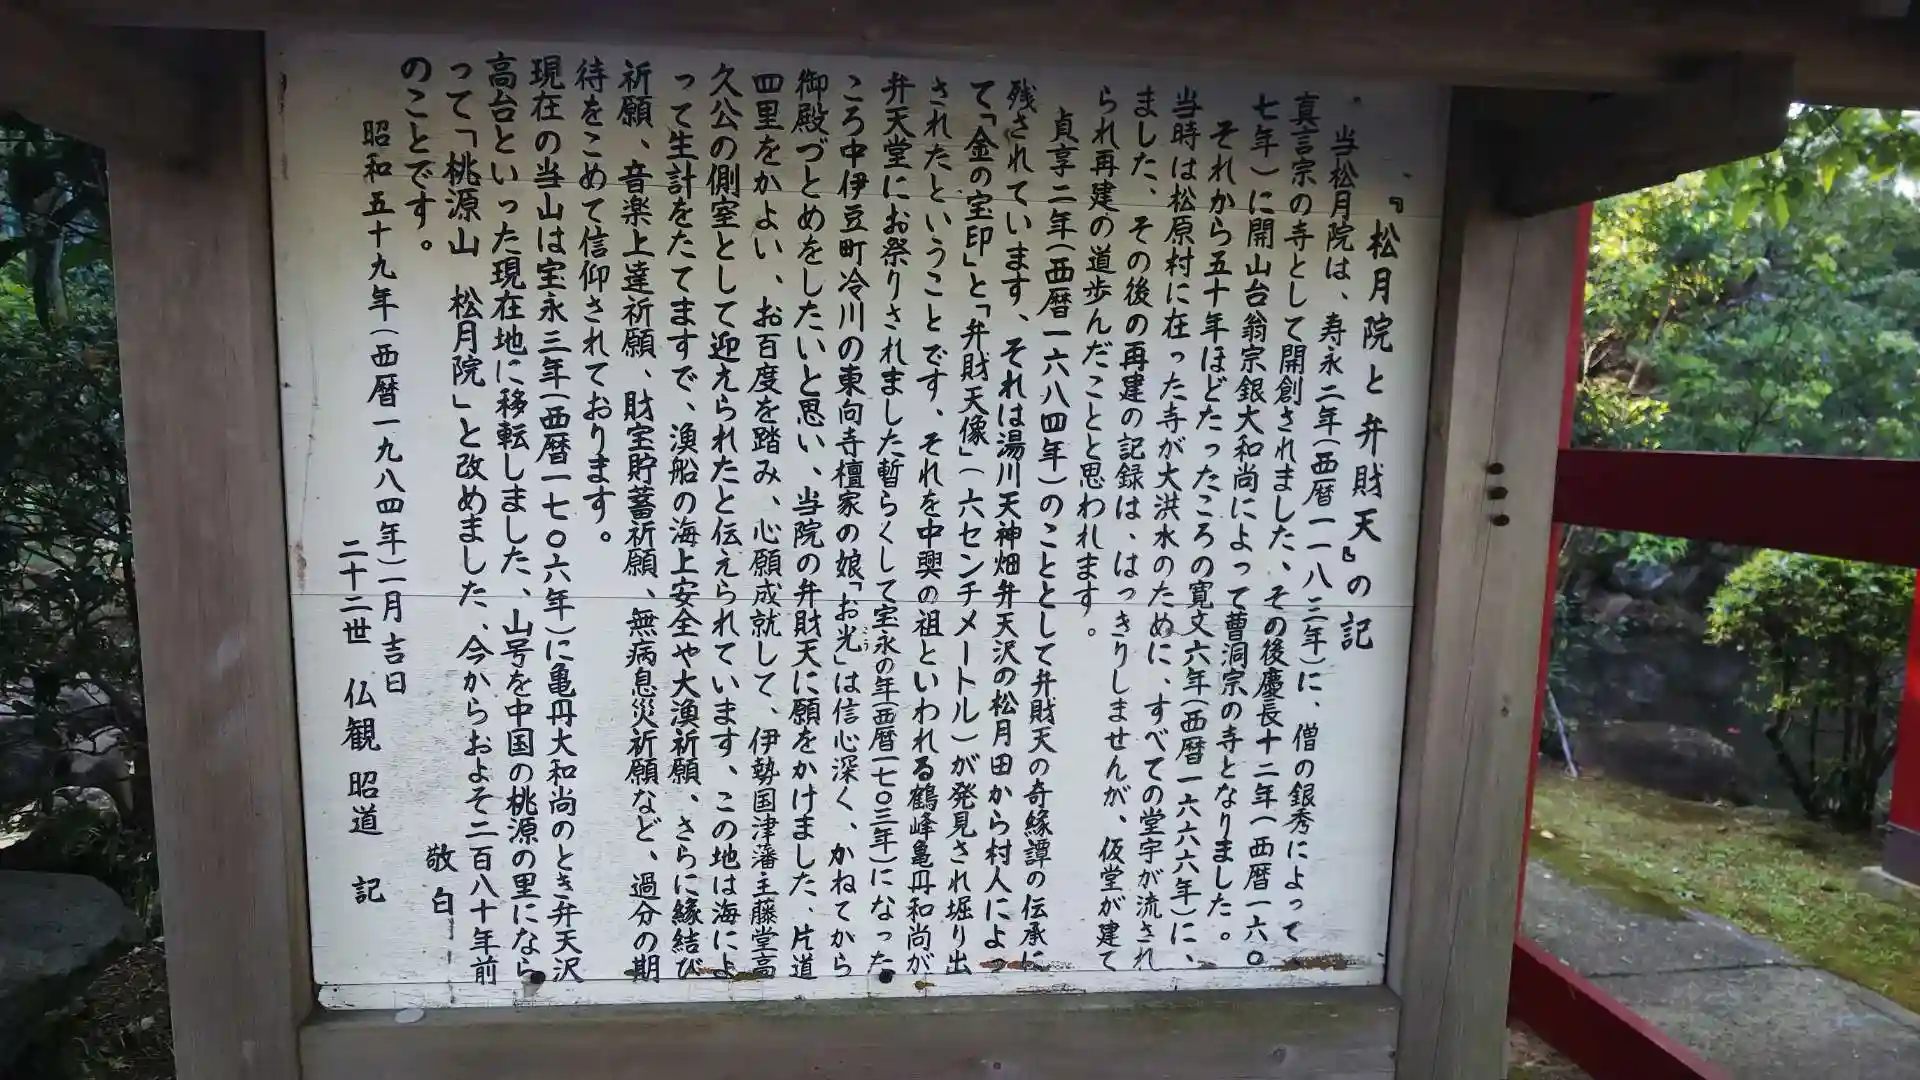 『松月院と弁財天』の記
当松月院は、寿永二年(西暦一一八三年)に、僧の銀秀によって
真言宗の寺として開創されました、その後慶長十二年(西暦一六〇
七年)に開山台翁宗銀大和尚によって曹洞宗の寺となりました。
それから五十年ほどたったころの寛文六年(西暦一六六六年)に、
当時は松原村に在った寺が大洪水のために、すべての堂宇が流され
ました、その後の再建の記録は、はっきりしませんが、仮堂が建て
られ再建の道歩んだことと思われます。
貞享二年(西暦一六八四年)のこととして弁財天の奇縁譚の伝承に
残されています、それは湯川天神畑弁天沢の松月田から村人によっ
て「金の宝印」と「弁財天像」(六センチメートル)が発見され堀り出
されたということです、それを中興の祖といわれる鶴峰亀丹和尚が
弁天堂にお祭りされました暫らくして宝永の年(西暦一七〇三年)になった
ころ中伊豆町冷川の東向寺檀家の娘「お光」は信心深く、かねてから
御殿づとめをしたいと思い、当院の弁財天に願をかけました、片道
四里をかよい、お百度を踏み、心願成就して、伊勢国津藩主藤堂高
久公の側室として迎えられたと伝えられています、この地は海によ
って生計をたてますで、漁船の海上安全や大漁祈願、さらに縁結び
祈願、音楽上達祈願、財宝貯蓄祈願、無病息災祈願など、過分の期
待をこめて信仰されております。
現在の当山は宝永三年(西暦一七〇六年)に亀丹大和尚のとき弁天沢
高台といった現在地に移転しました、山号を中国の桃源の里になら
って「桃源山 松月院」と改めました、今からおよそ二百八十年前
のことです。
敬白
昭和五十九年(西暦一九八四年)一月吉日
二十二世 仏観昭道 記